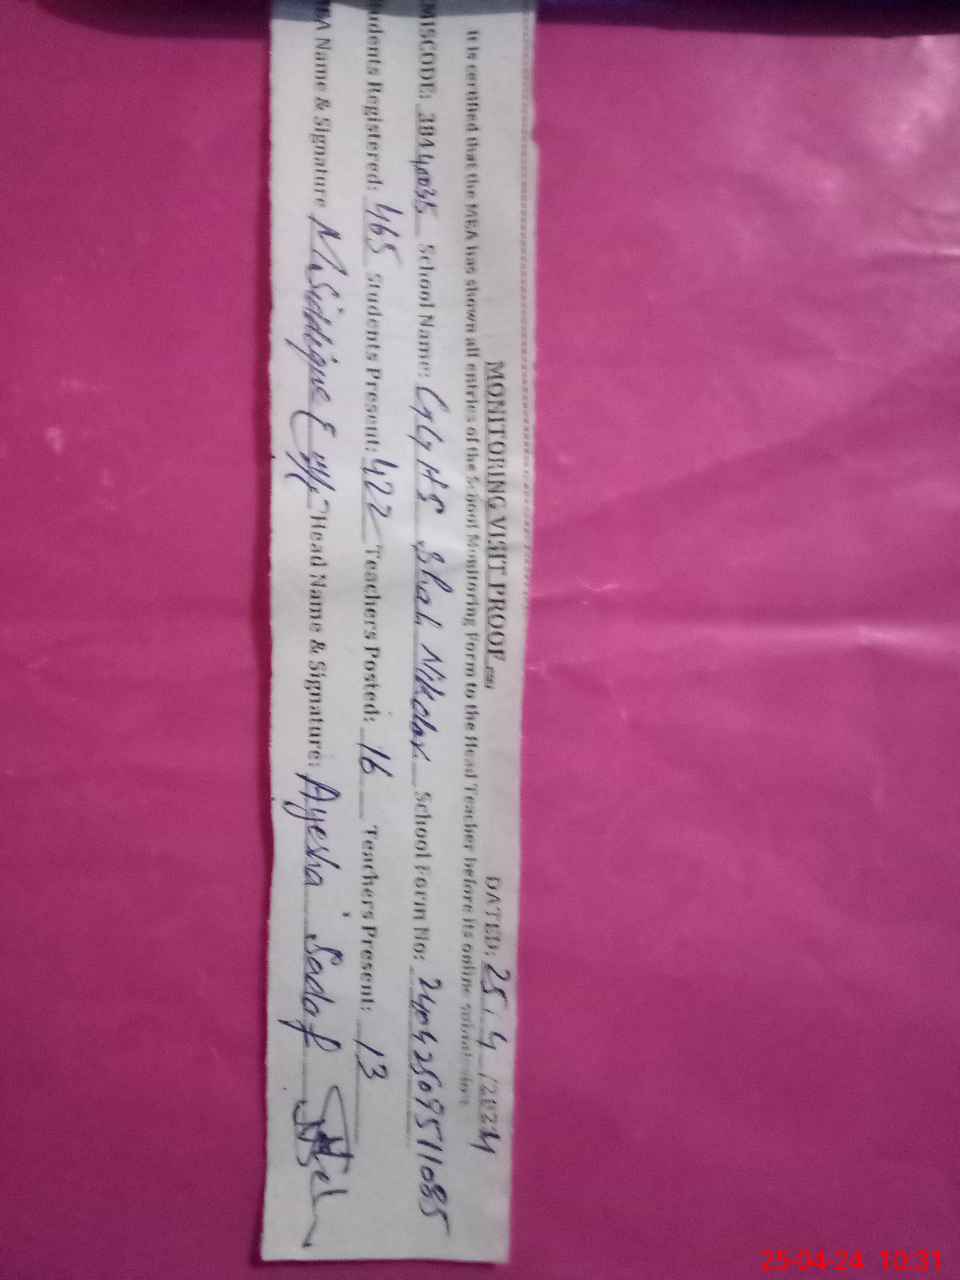 MONITORING VISIT PROOF DATED: 25/4/2024
It is certified that the MEA has shown all entries of the School Monitoring Form to the Head Teacher before its online submission.
MISCODE: 38140035 School Name: GGHS Shah Nikdar School Form No: 24042509511085
udents Registered: 465 Students Present: 422 Teachers Posted: 16 Teachers Present: 13
EA Name & Signature M. Siddique Head Name & Signature: Ayesha Sadaf
25-04-24 10:31